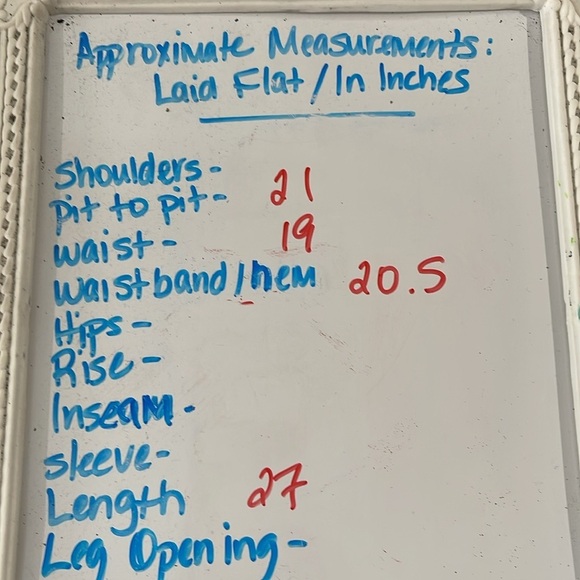 Approximate Measurements:
Laid Flat/In Inches
Shoulders-
pit to pit- 21
waist- 19
waistband/hem 20.5
Hips-
Rise-
Inseam-
sleeve-
Length 27
Leg Opening-